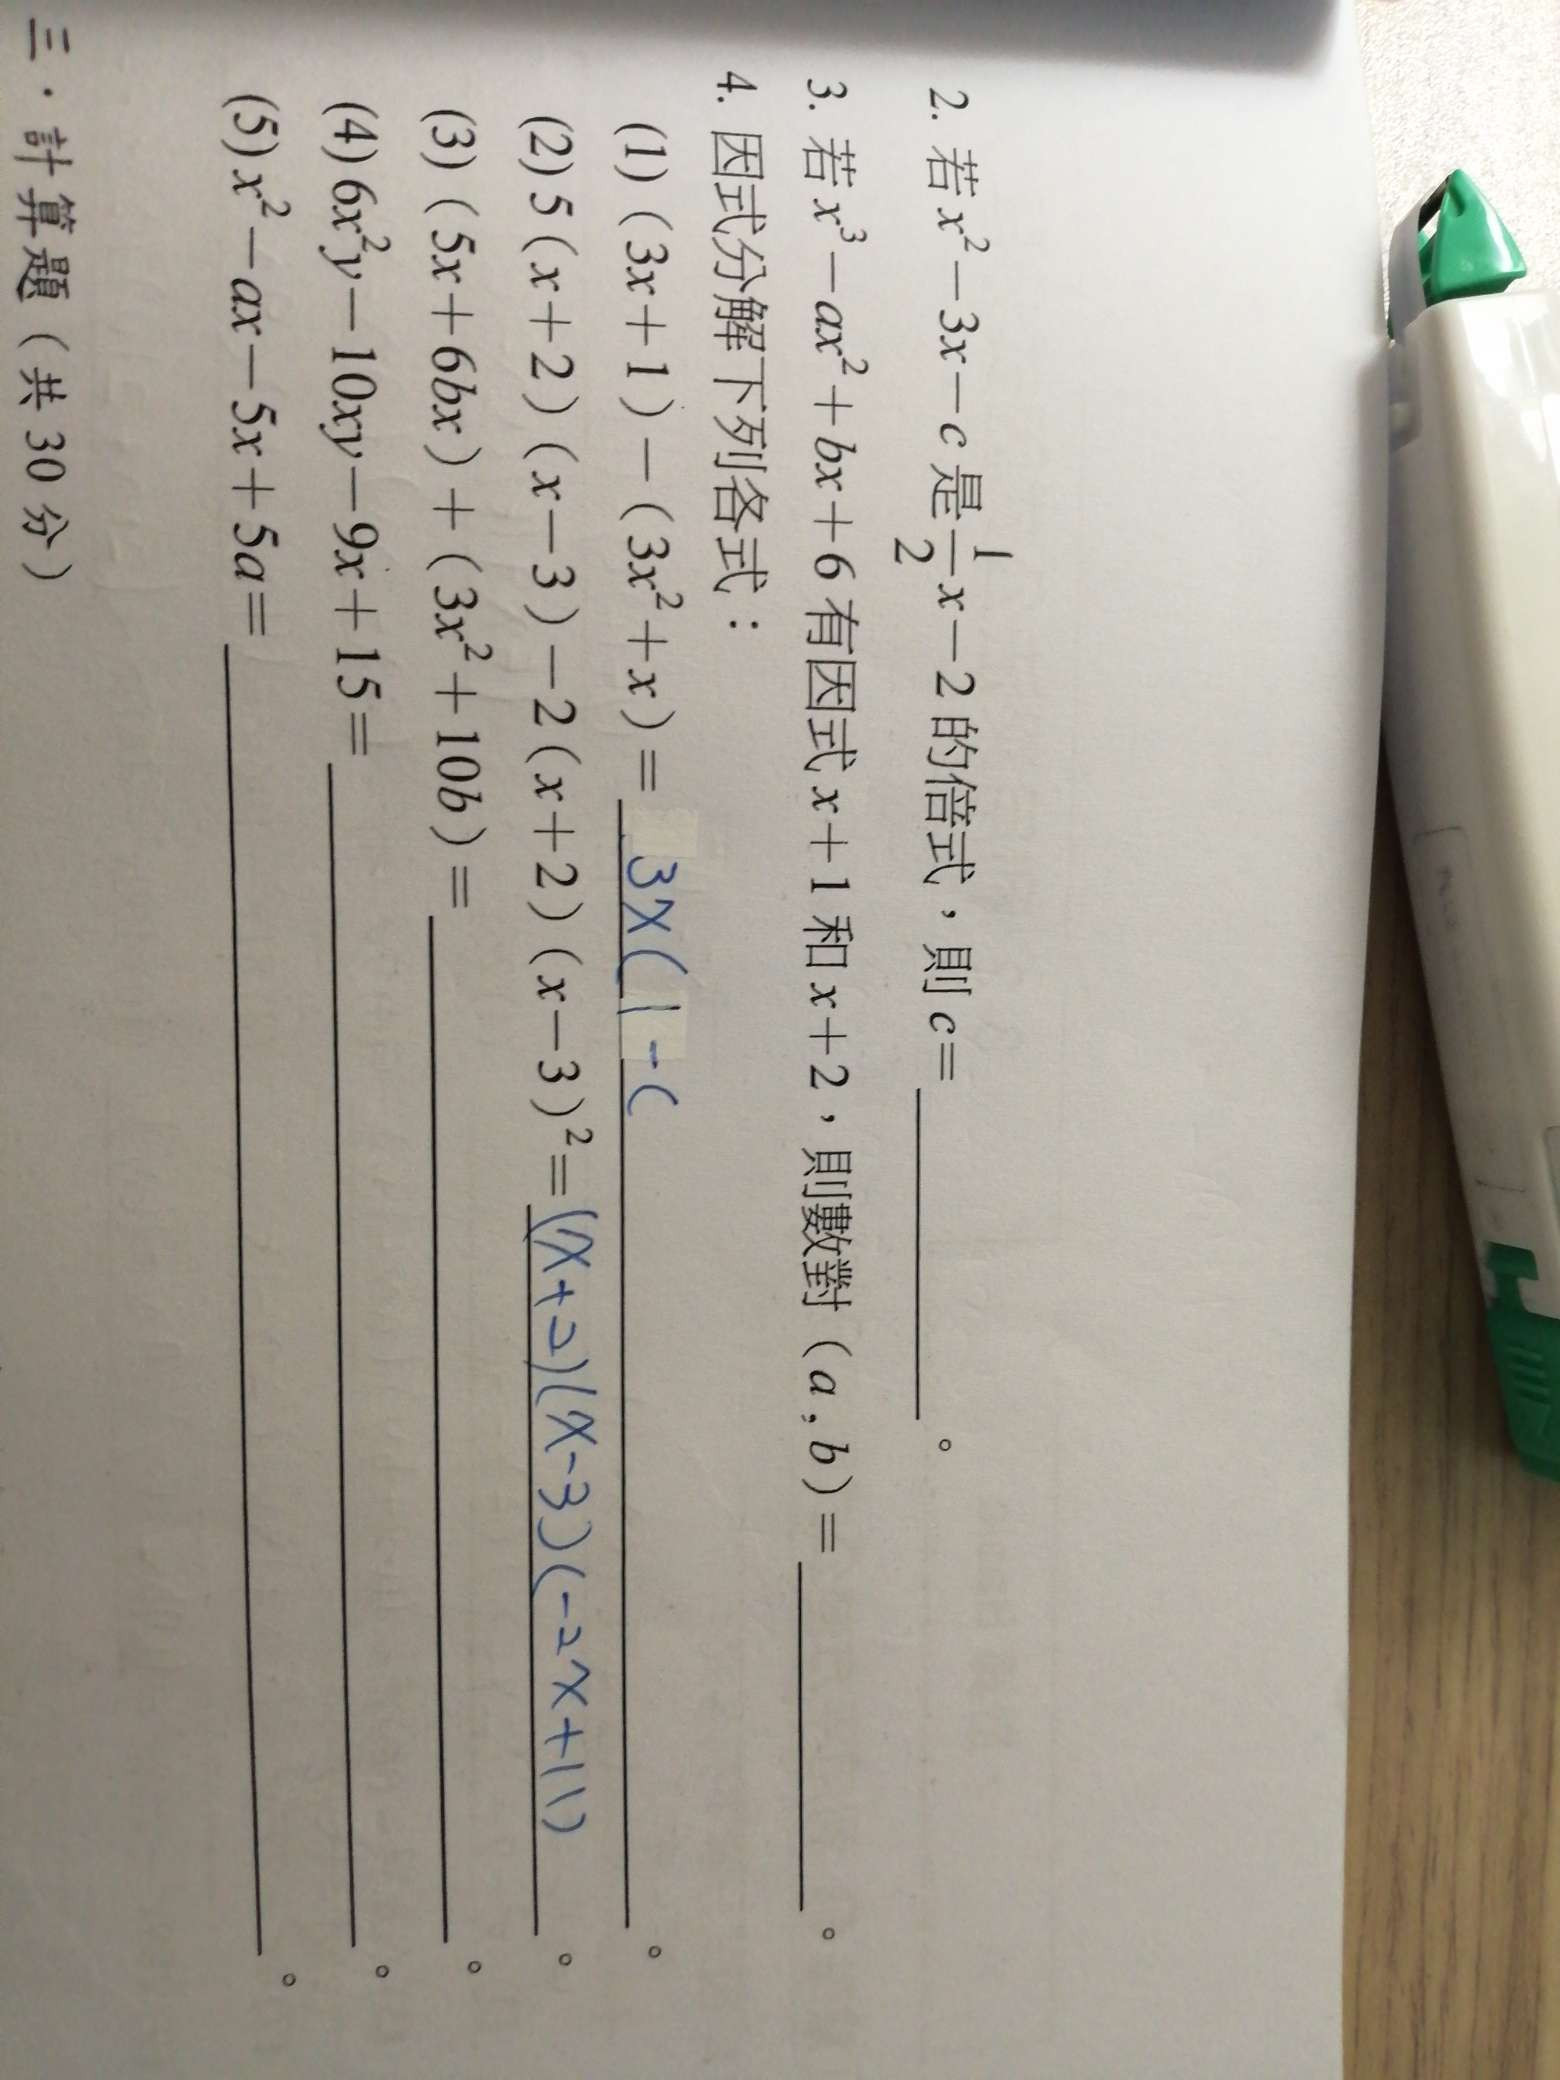 2. 若 x²－3x－c 是 1/2 x－2 的倍式，則 c＝ 。
3. 若 x³－ax²＋bx＋6 有因式 x＋1 和 x＋2，則數對（a , b）＝ 。
4. 因式分解下列各式：
(1)（3x＋1）－（3x²＋x）＝ 3x(1-(
(2) 5（x＋2）（x－3）－2（x＋2）（x－3）²＝ (x+2)(x-3)(-2x+11) 。
(3)（5x＋6bx）＋（3x²＋10b）＝ 。
(4) 6x²y－10xy－9x＋15＝ 。
(5) x²－ax－5x＋5a＝ 。
三．計算題（共 30 分）